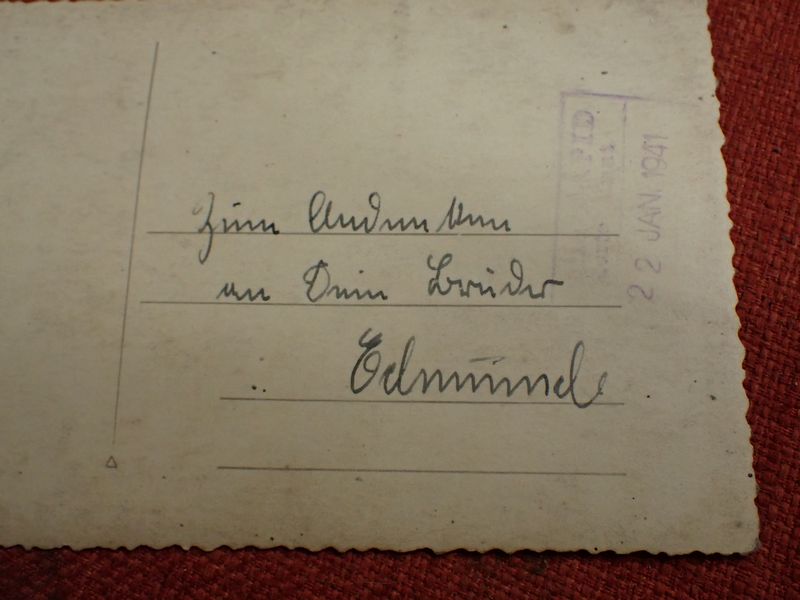 Zum Andenken
an Dein Bruder
Edmund
22 JAN. 1941